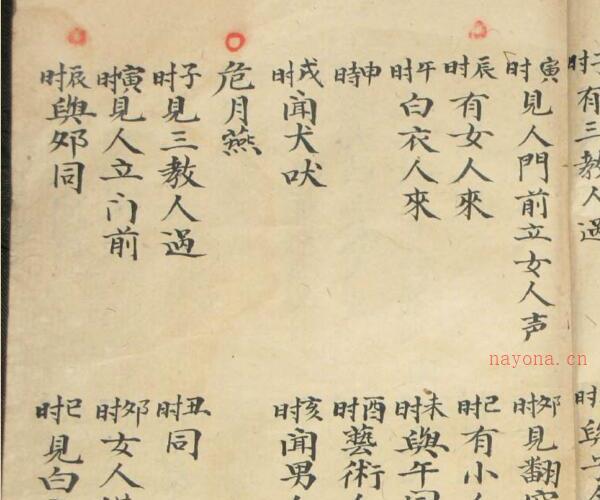 子时有三教人過
时與
寅时見人門前立女人声
夘时見翻
辰时有女人來
巳时有小
午时白衣人來
未时與午同
申时
酉时藝術
戌时聞犬吠
亥时聞男
危月燕
子时見三教人過
丑时同
寅时見人立门前
夘时女人
辰时與夘同
巳时見白
nayona.cn